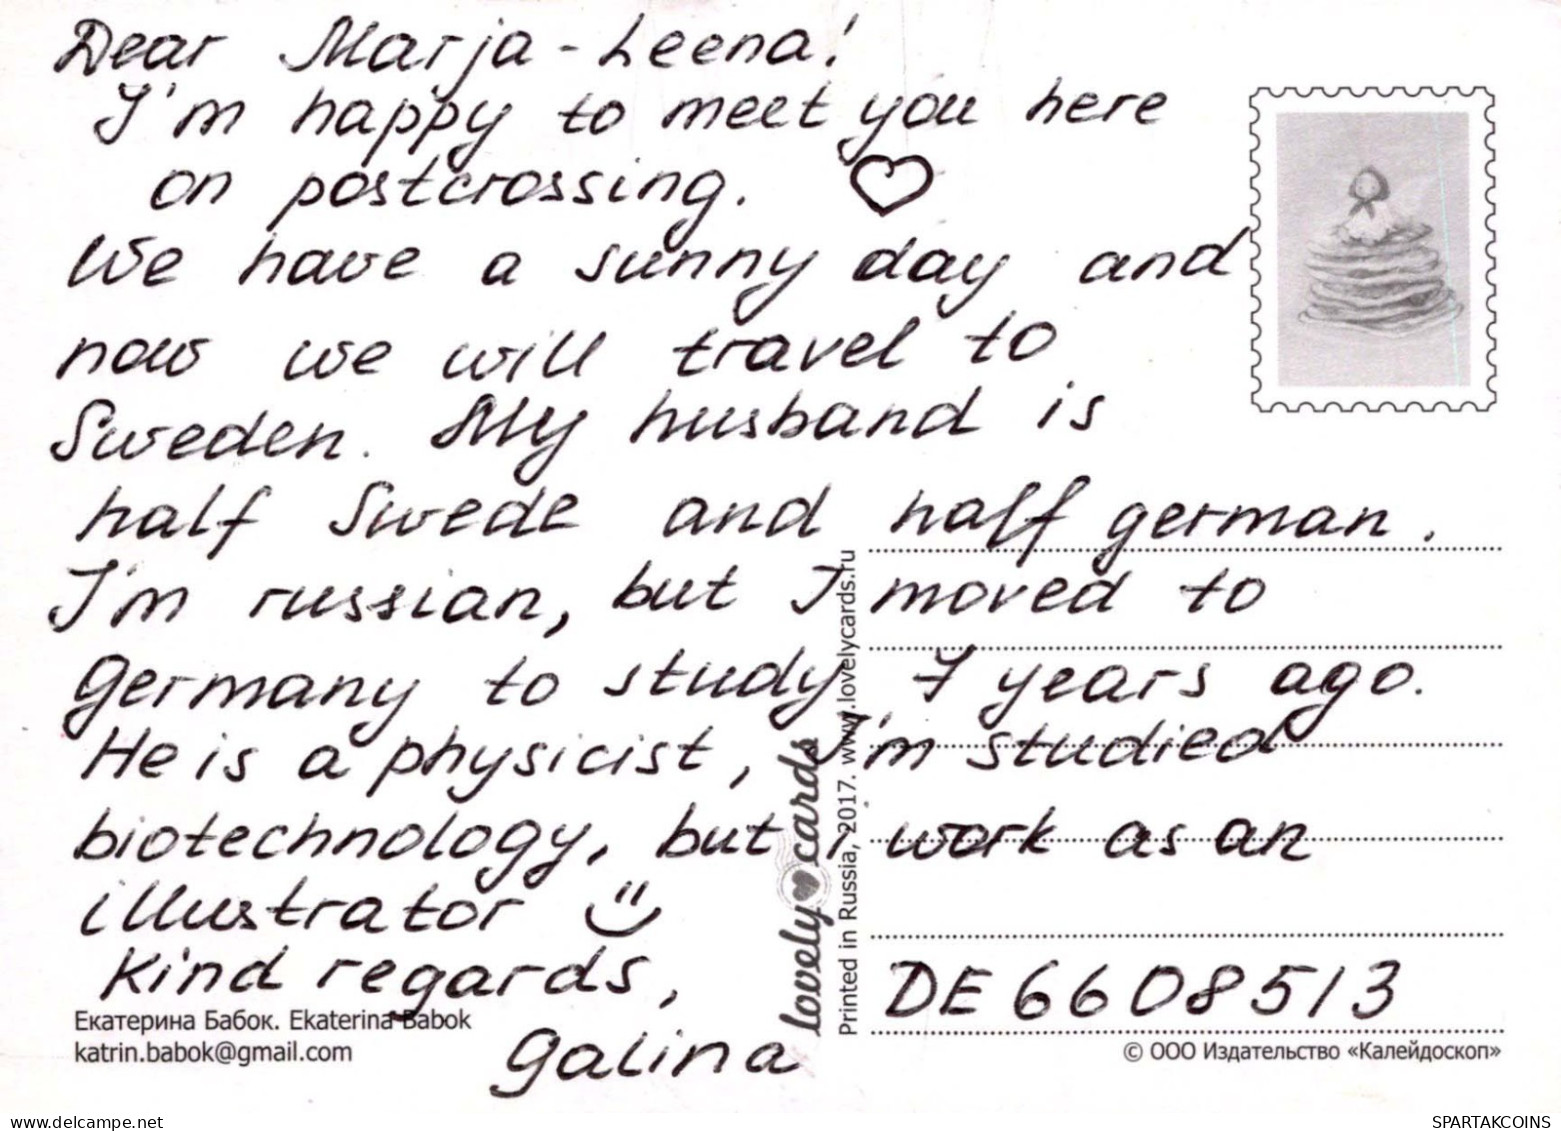 Dear Marja-Leena!
I'm happy to meet you here
on postcrossing. ♡
We have a sunny day and
now we will travel to
Sweden. My husband is
half Swede and half german.
I'm russian, but I moved to
Germany to study 7 years ago.
He is a physicist, I'm studied
biotechnology, but i work as an
illustrator
Kind regards,
Galina
DE6608513
Екатерина Бабок. Ekaterina Babok
katrin.babok@gmail.com
lovely cards
Printed in Russia, 2017. www.lovelycards.ru
© ООО Издательство «Калейдоскоп»
SPARTAKCOINS
www.delcampe.net